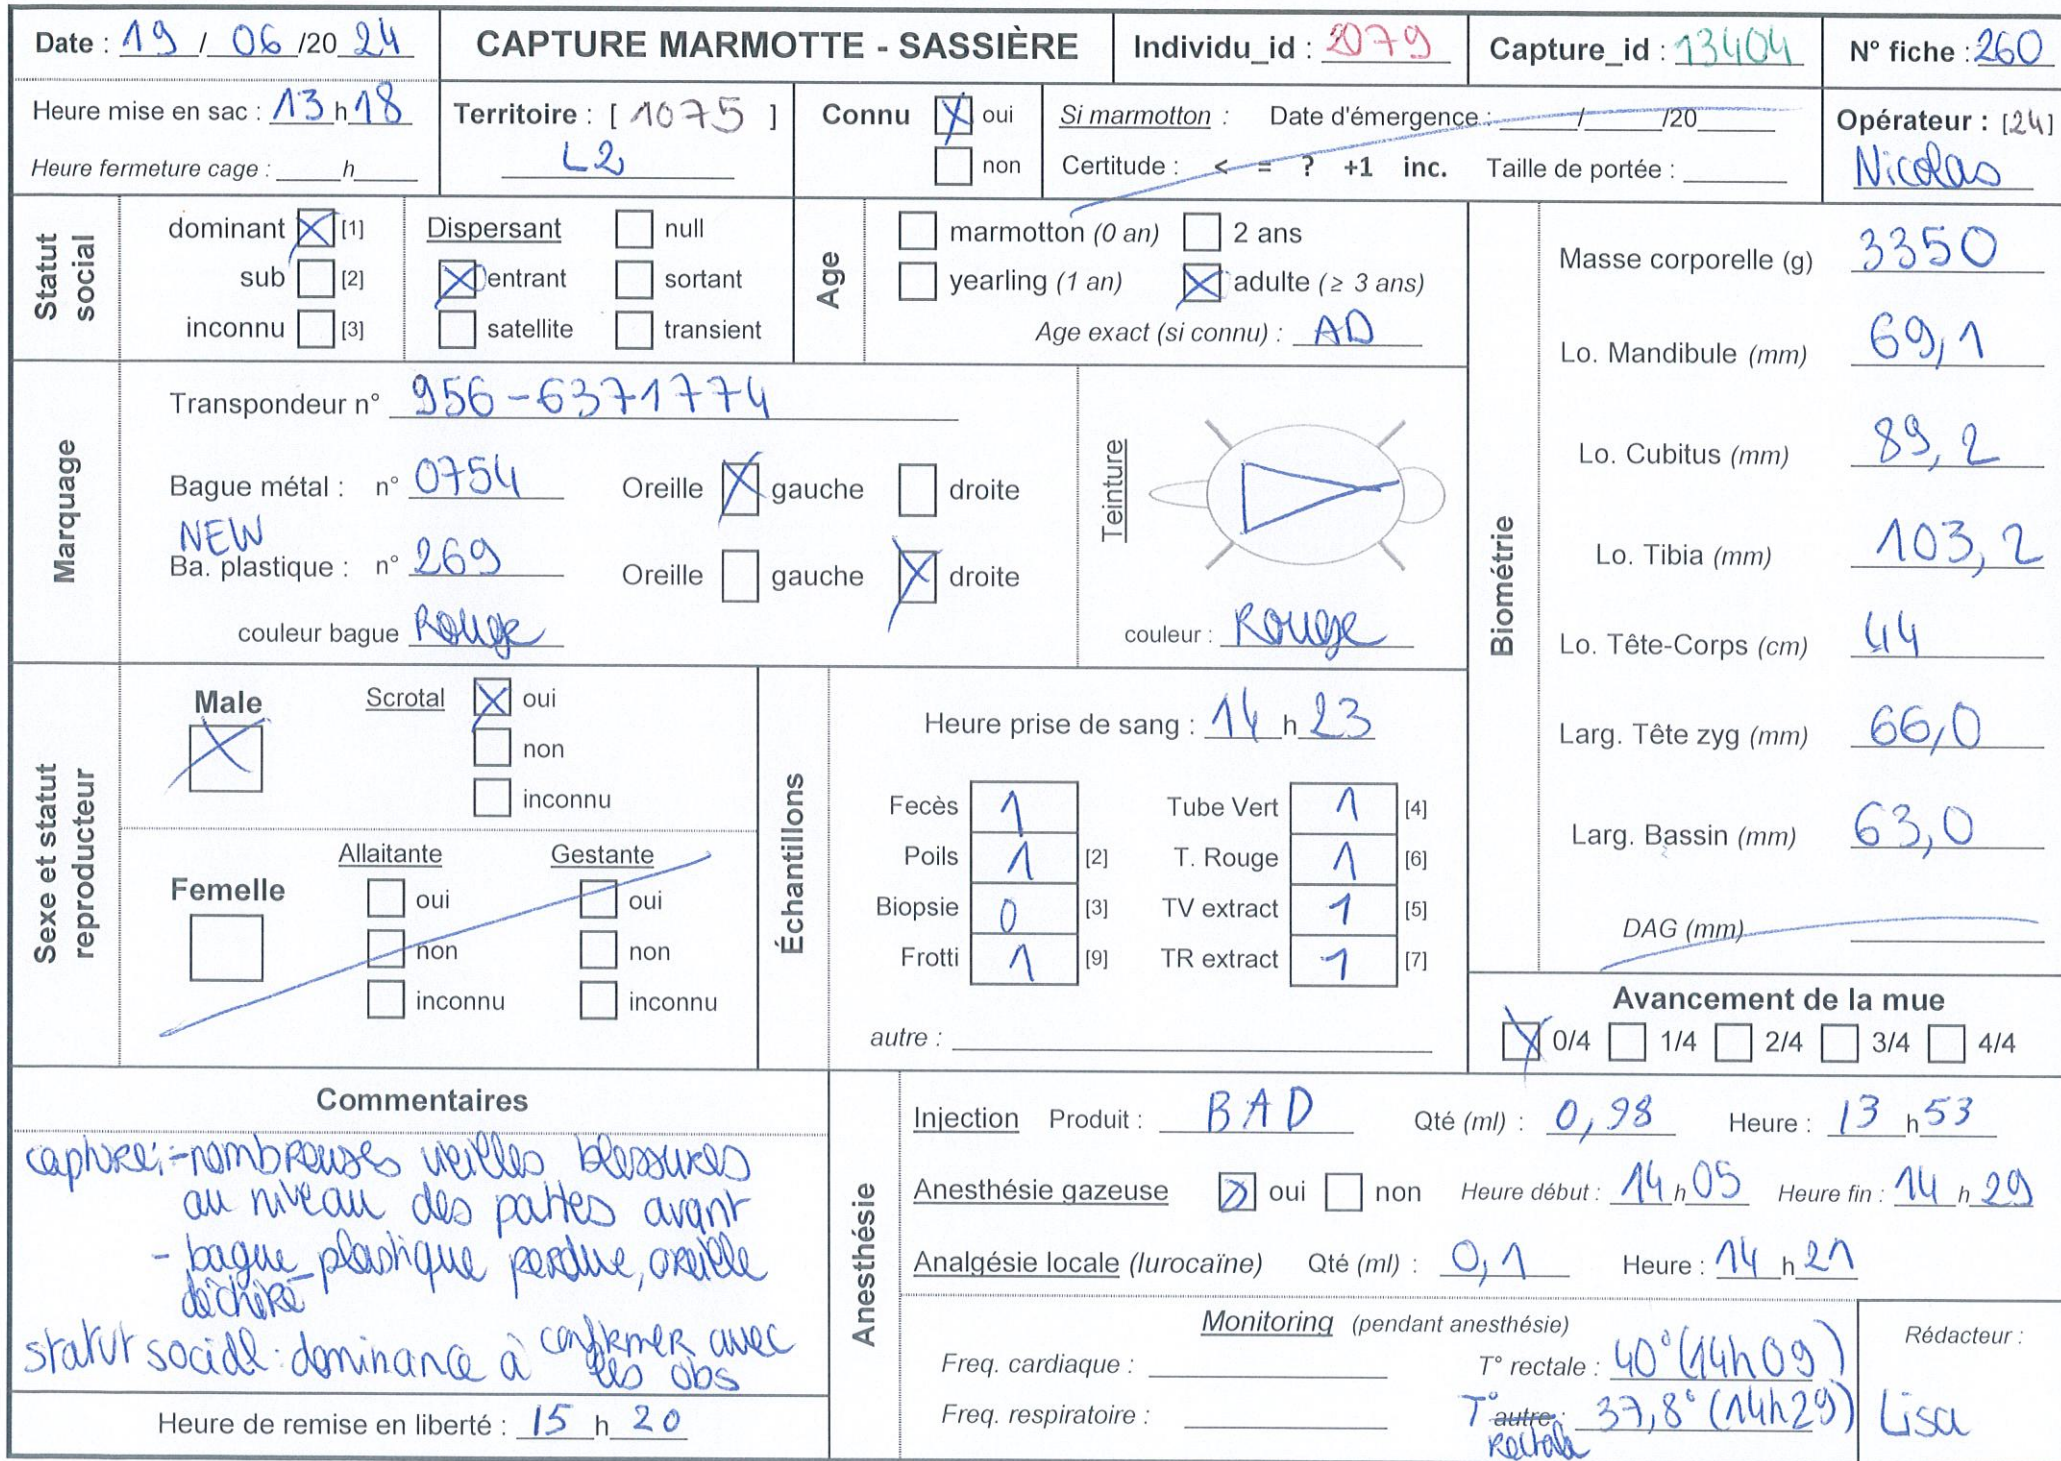 Date : 19 / 06 /20 24
CAPTURE MARMOTTE - SASSIÈRE
Individu_id : 2079
Capture_id : 13404
N° fiche : 260
Heure mise en sac : 13 h 18
Heure fermeture cage : _____h_____
Territoire : [ 1075 ]
L2
Connu
oui
non
Si marmotton : Date d'émergence : _____/_____/20_____
Certitude : < = ? +1 inc. Taille de portée :
Opérateur : [24]
Nicolas
Statut social
dominant [1]
sub [2]
inconnu [3]
Dispersant
null
entrant
sortant
satellite
transient
Age
marmotton (0 an)
2 ans
yearling (1 an)
adulte (≥ 3 ans)
Age exact (si connu) : AD
Marquage
Transpondeur n° 956-6371774
Bague métal : n° 0754 Oreille gauche droite
NEW
Ba. plastique : n° 269 Oreille gauche droite
couleur bague Rouge
Teinture
couleur : Rouge
Biométrie
Masse corporelle (g) 3350
Lo. Mandibule (mm) 69,1
Lo. Cubitus (mm) 89,2
Lo. Tibia (mm) 103,2
Lo. Tête-Corps (cm) 44
Larg. Tête zyg (mm) 66,0
Larg. Bassin (mm) 63,0
DAG (mm)
Sexe et statut reproducteur
Male
Scrotal
oui
non
inconnu
Femelle
Allaitante
oui
non
inconnu
Gestante
oui
non
inconnu
Échantillons
Heure prise de sang : 14 h 23
Fecès 1 Tube Vert 1 [4]
Poils 1 [2] T. Rouge 1 [6]
Biopsie 0 [3] TV extract 1 [5]
Frotti 1 [9] TR extract 1 [7]
autre :
Avancement de la mue
0/4 1/4 2/4 3/4 4/4
Commentaires
capture: - nombreuses vieilles blessures
au niveau des pattes avant
- bague plastique perdue, oreille
déchiré
statut social : dominance à confirmer avec
les obs
Heure de remise en liberté : 15 h 20
Anesthésie
Injection Produit : BAD Qté (ml) : 0,98 Heure : 13 h 53
Anesthésie gazeuse oui non Heure début : 14 h 05 Heure fin : 14 h 29
Analgésie locale (lurocaïne) Qté (ml) : 0,1 Heure : 14 h 21
Monitoring (pendant anesthésie)
Freq. cardiaque : T° rectale : 40° (14h09)
Freq. respiratoire : T° autre : 37,8° (14h29)
Rectale
Rédacteur :
Lisa